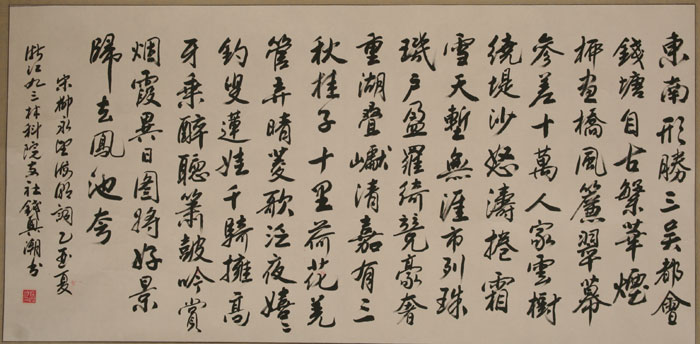 東南形勝三吳都會
錢塘自古繁華煙
柳畫橋風簾翠幕
參差十萬人家雲樹
繞堤沙怒濤捲霜
雪天塹無涯市列珠
璣戶盈羅綺競豪奢
重湖疊巘清嘉有三
秋桂子十里荷花羌
管弄晴菱歌泛夜嬉〻
釣叟蓮娃千騎擁高
牙乘醉聽簫鼓吟賞
烟霞異日圖將好景
歸去鳳池夸
宋柳永望海潮詞乙亥夏
浙江九三林科院支社錢興潮書